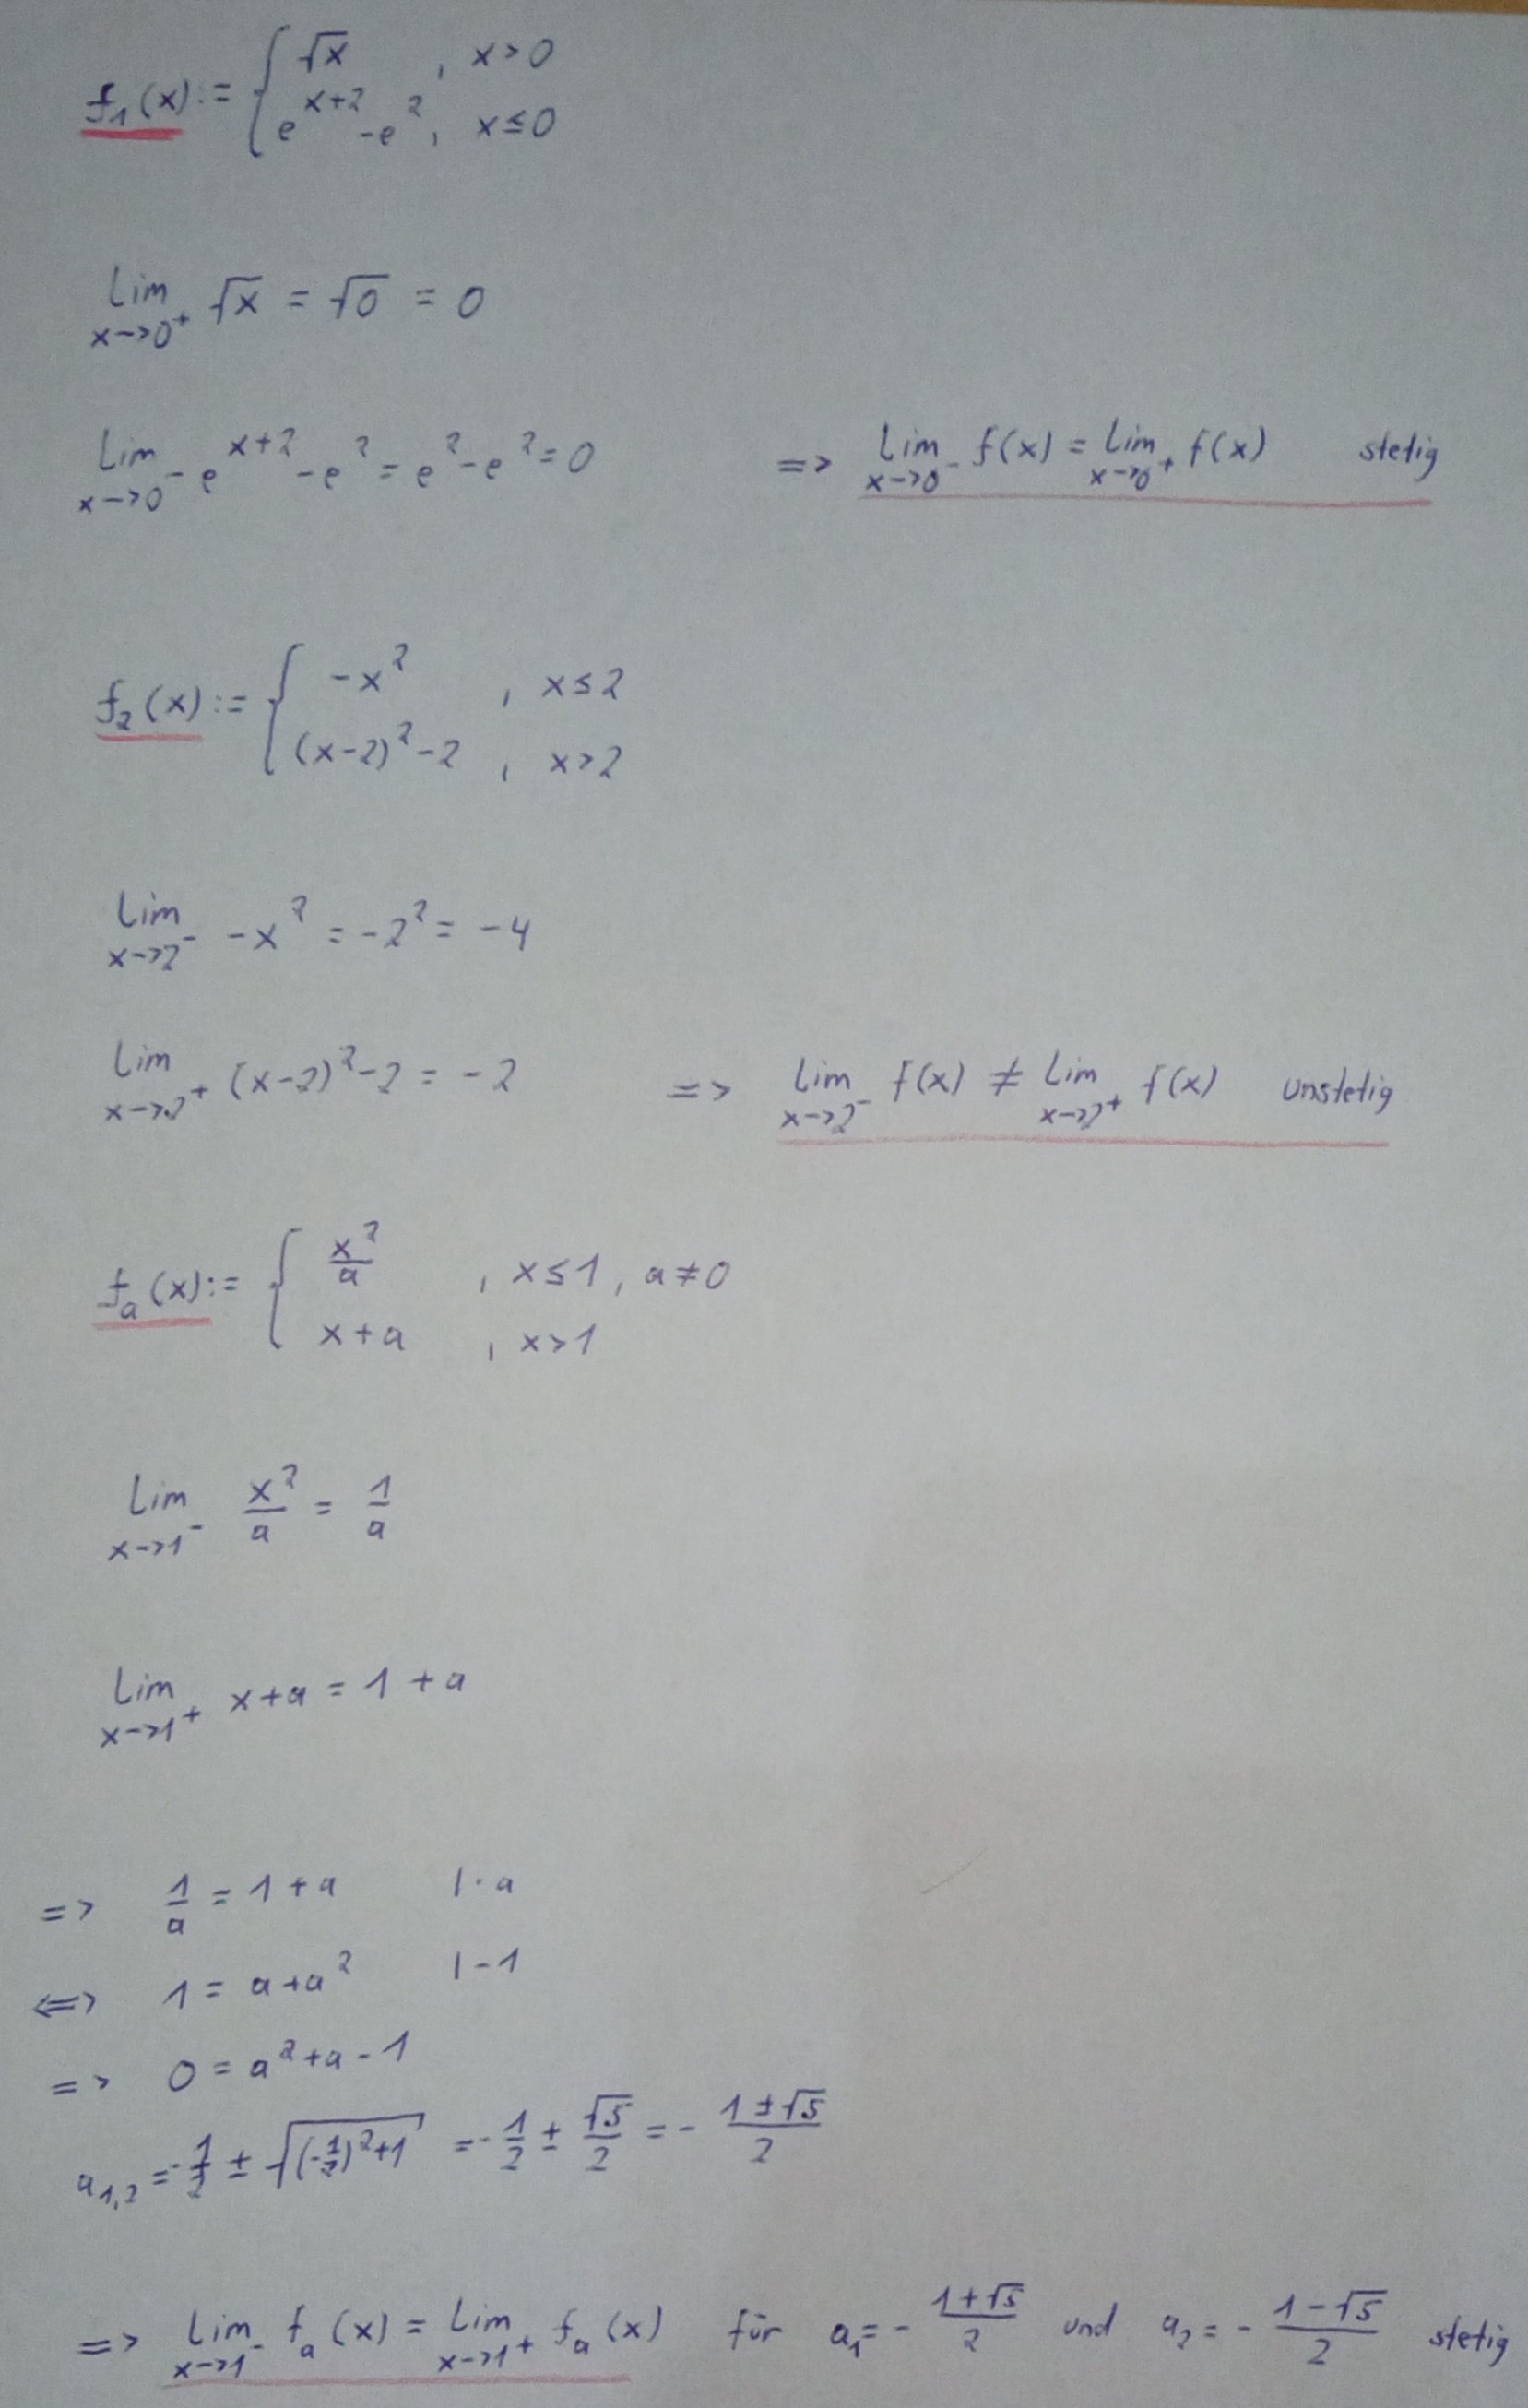 f₁(x) := { √x , x > 0
e^(x+2) - e² , x ≤ 0
lim x->0⁺ √x = √0 = 0
lim x->0⁻ e^(x+2) - e² = e² - e² = 0 => lim x->0⁻ f(x) = lim x->0⁺ f(x) stetig
f₂(x) := { -x² , x ≤ 2
(x-2)² - 2 , x > 2
lim x->2⁻ -x² = -2² = -4
lim x->2⁺ (x-2)² - 2 = -2 => lim x->2⁻ f(x) ≠ lim x->2⁺ f(x) unstetig
fₐ(x) := { x²/a , x ≤ 1, a ≠ 0
x + a , x > 1
lim x->1⁻ x²/a = 1/a
lim x->1⁺ x + a = 1 + a
=> 1/a = 1 + a | · a
<=> 1 = a + a² | - 1
=> 0 = a² + a - 1
a₁,₂ = -1/2 ± √((-1/2)² + 1) = -1/2 ± √5/2 = - (1 ± √5)/2
=> lim x->1⁻ fₐ(x) = lim x->1⁺ fₐ(x) für a₁ = - (1 + √5)/2 und a₂ = - (1 - √5)/2 stetig